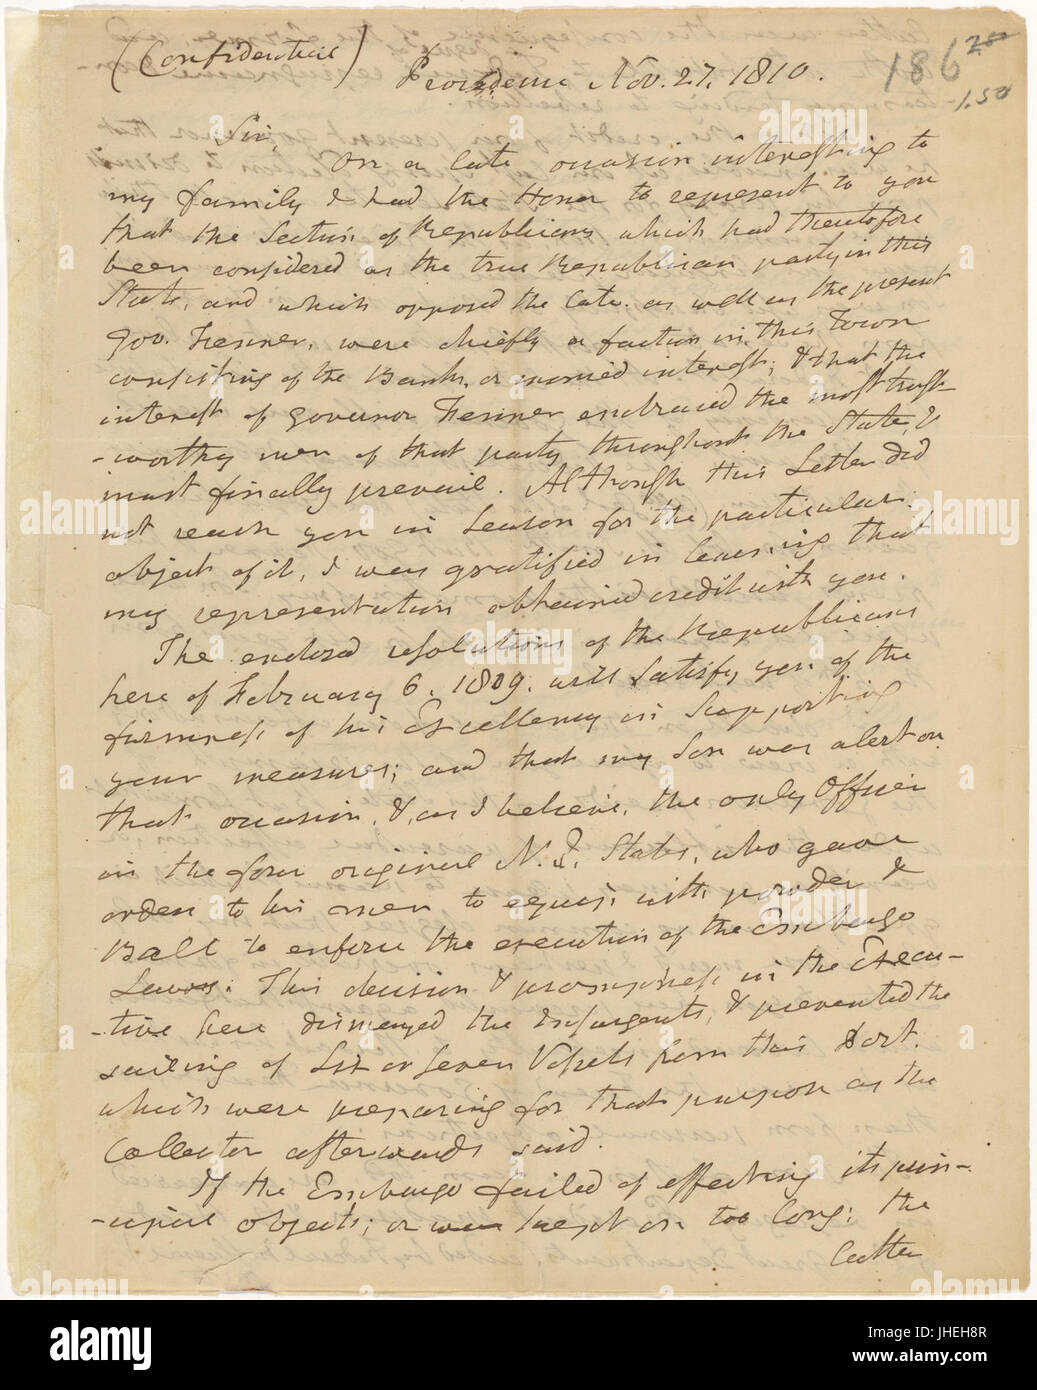 (Confidential)
Providence Nov. 27. 1810.
186
1.50
Sir,
On a late occasion interesting to
my family I had the Honor to represent to you
that the Section of Republicans which had theretofore
been considered as the true Republican party in this
State, and which opposed the late as well as the present
Gov. Fenner, were chiefly a faction in this Town
consisting of the Bank, or monied interest; & that the
interest of Governor Fenner embraced the most trust-
-worthy men of that party throughout the State, &
must finally prevail. Although this Letter did
not reach you in Season for the particular
object of it, I was gratified in learning that
my representation obtained credit with you.
The enclosed resolutions of the Republicans
here of February 6. 1809. will Satisfy you of the
firmness of his Excellency in Supporting
your measures; and that my Son was alert on
that occasion, &, as I believe, the only Officer
in the four original N. E. States, who gave
orders to his men to equip with powder &
Ball to enforce the execution of the Embargo
Laws. This decision & promptness in the Execu-
-tive here dismayed the Insurgents, & prevented the
sailing of Six or Seven Vessels from this Port.
which were preparing for that purpose as the
Collector afterwards said.
If the Embargo failed of effecting its prin-
-cipal objects; or was kept on too long; the
latter
alamy
alamy stock photo
alamy
Image ID: JHEH8R
www.alamy.com